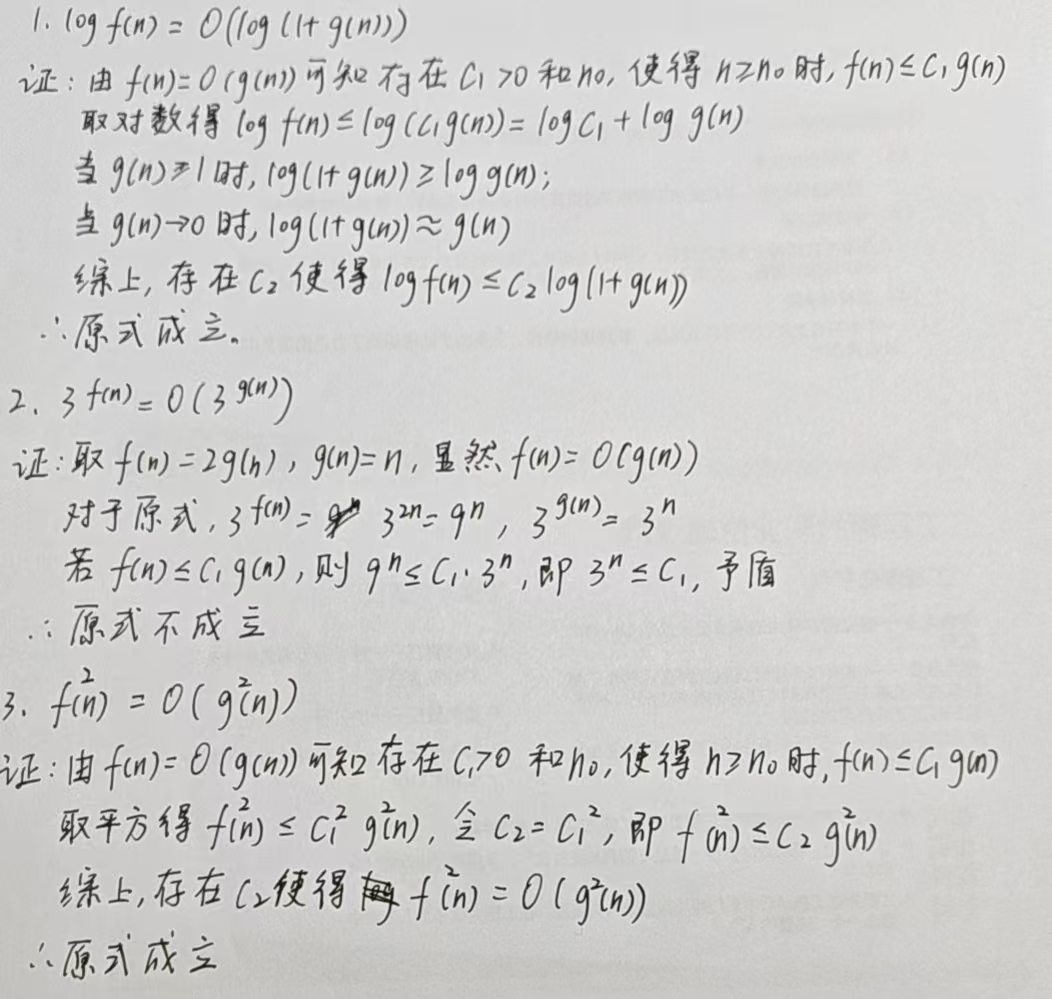 1. log f(n) = O(log (1+ g(n)))
证：由 f(n)=O(g(n)) 可知 存在 C₁>0 和 n₀, 使得 n≥n₀ 时, f(n)≤C₁g(n)
取对数得 log f(n)≤log(C₁g(n))= logC₁ + log g(n)
当 g(n)≥1时, log(1+g(n))≥log g(n);
当 g(n)→0 时, log(1+g(n))≈g(n)
综上, 存在 C₂ 使得 logf(n)≤C₂log(1+g(n))
∴原式成立。
2. 3^f(n)=O(3^g(n))
证:取 f(n)=2g(n), g(n)=n, 显然 f(n)=O(g(n))
对于原式, 3^f(n)= 3^2n=9^n, 3^g(n)=3^n
若 f(n)≤C₁g(n), 则 9^n≤C₁·3^n, 即 3^n≤C₁, 予盾
∴ 原式不成立
3. f²(n) = O(g²(n))
证:由 f(n)=O(g(n)) 可知 存在 C₁>0 和 n₀, 使得 n≥n₀ 时, f(n)≤C₁g(n)
取平方得 f²(n)≤C₁² g²(n), 令 C₂=C₁², 即 f²(n)≤C₂ g²(n)
综上, 存在 C₂使得 f²(n)=O(g²(n))
∴原式成立